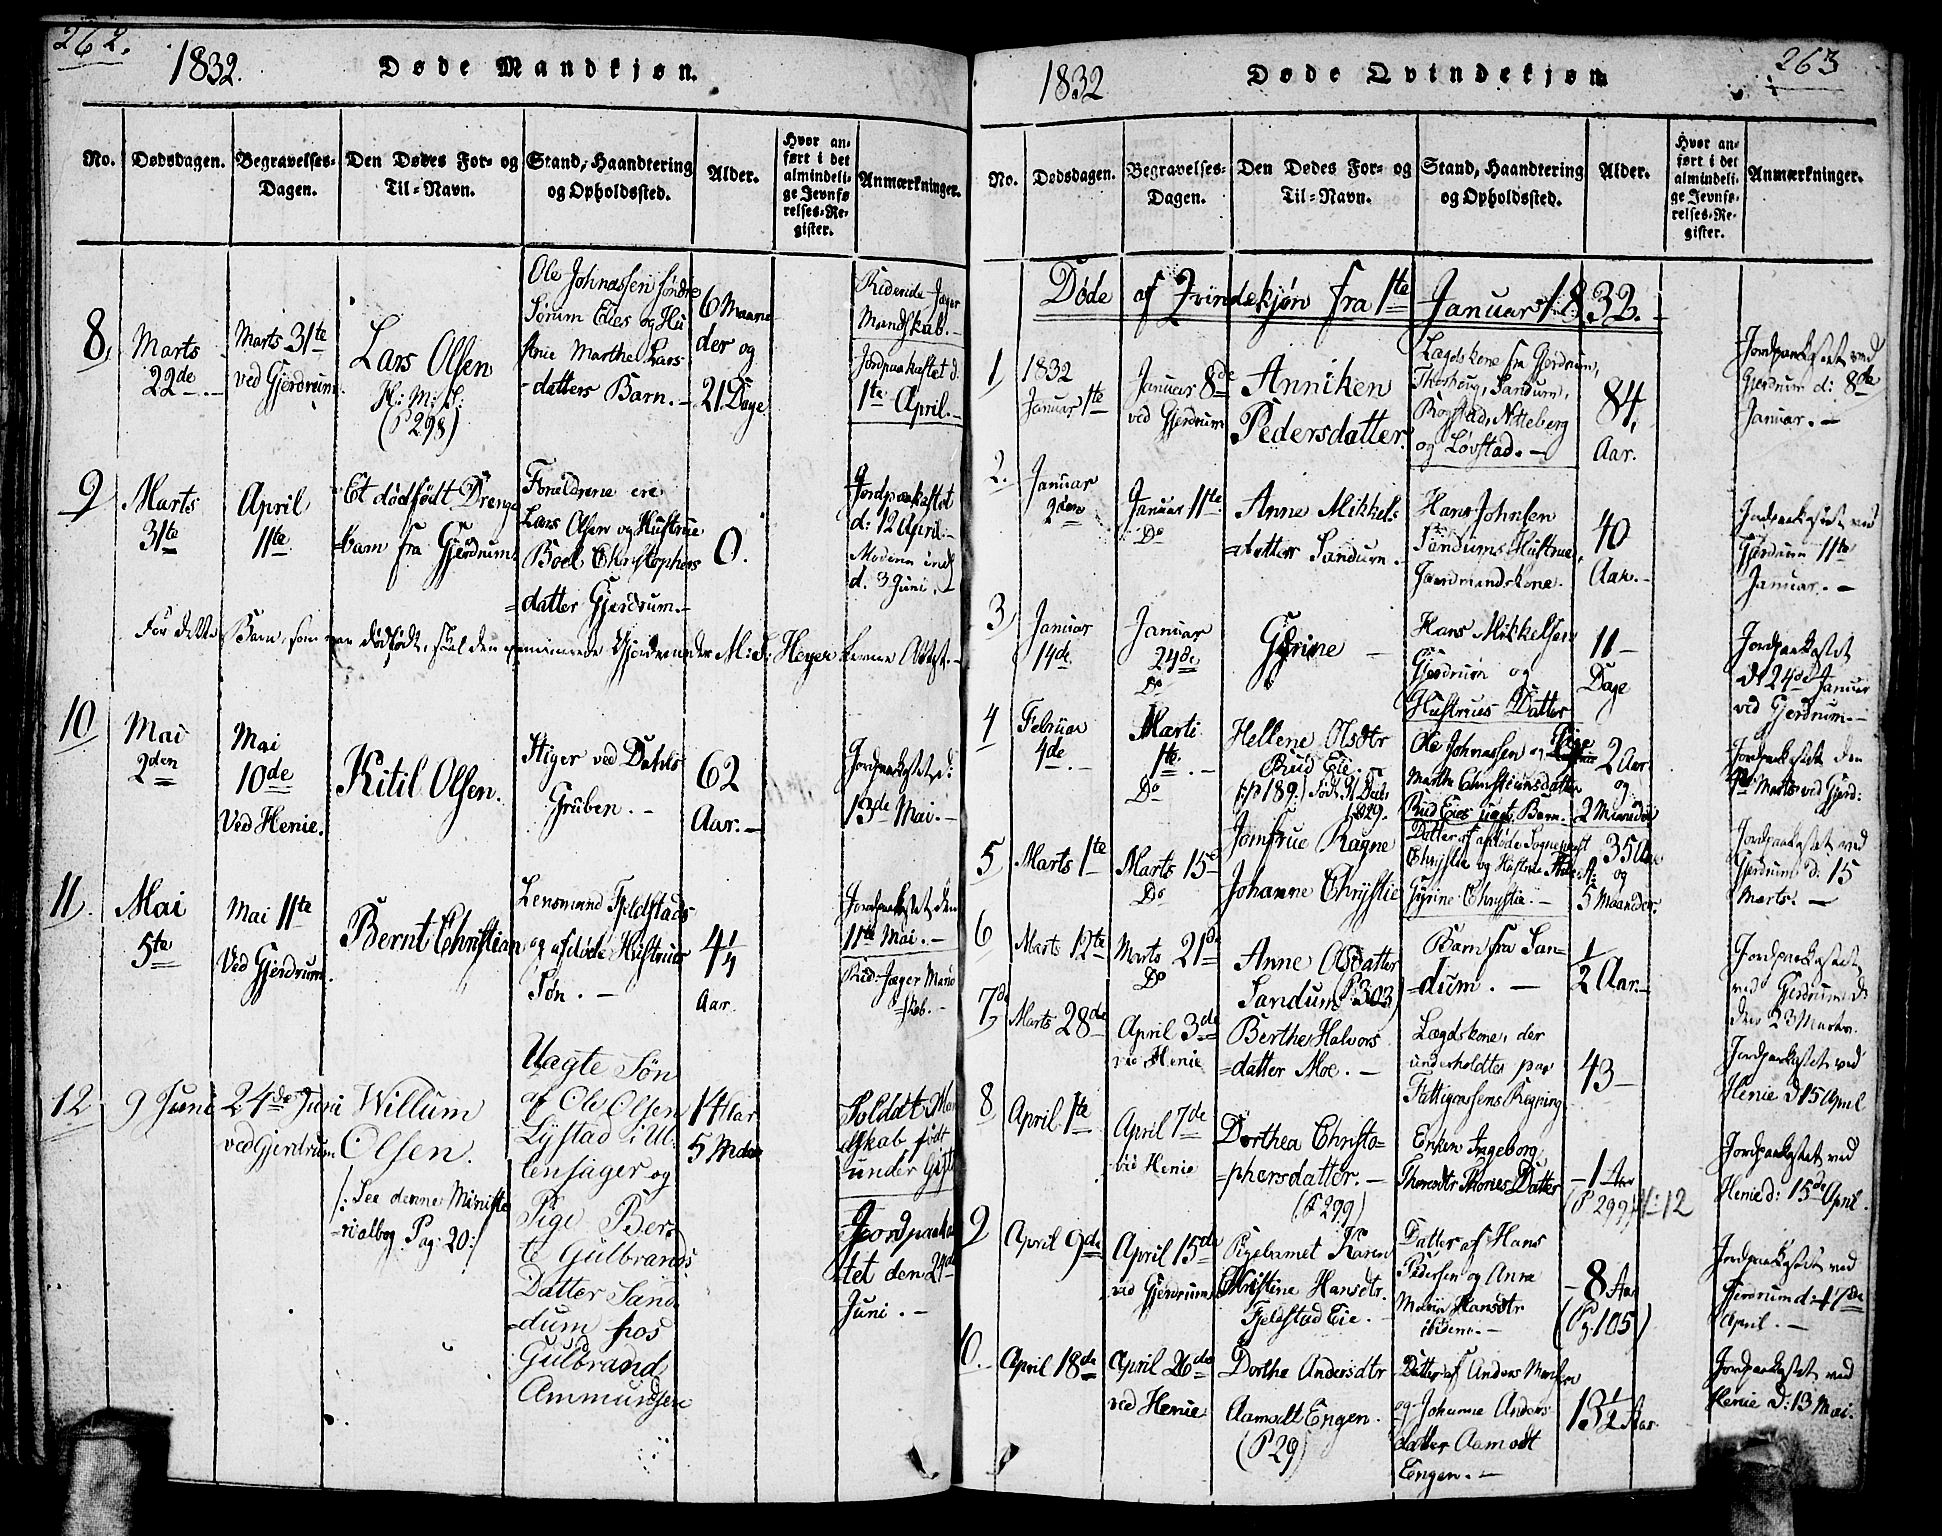 262.
1832. Døde Mandkjøn.
No. Dødsdagen. Begravelses-Dagen. Den Dødes For- og Til-Navn. Stand, Haandtering og Opholdssted. Alder. Hvor anført i det almindelige Jevnførelses-Register. Anmærkninger.
8,
Marts
22de
Marts 31te
ved Gjerdrum.
Lars Olsen
(P 298)
Ole Johnassen Søndre
Sørum Eies og Hu
Anie Marthe Lars
datters Barn.
6 Maane
der og
21 Dage
Rideride Jæger
Mandskab.
Jordpaakastet d.
1te April.
9
Marts
31te
April
11te
Et dødfødt Drenge
barn fra Gjerdrum.
Forældrene ere
Lars Olsen og Hustrue
Boel Christophers
datter Gjerdrum.
0.
Jordpaakastet
d. 12 April.
Moderen
d. 3 Juni.
For dette Barn, som var dødfødt, skal den M: d: Heyer
10
Mai
2den
Mai
10de
Ved Henie.
Kitil Olsen.
Stiger ved Dahls
Gruben.
62
Aar.
Jordpaakastet d:
13de Mai.
11.
Mai
5te
Mai 11te
Ved Gjerdrum.
Bernt Christian
Lensmand Fjeldstads
og afdøde Hustrues
Søn.
Aar.
Jordpaakastet den
11te Mai.
Rid: Jæger Mand
skab.
12
9 Juni
24de Juni
ved Gjerdrum
Willum
Olsen.
/: See denne Ministe
rialbog Pag: 20:/
Uægte Søn
af Ole Olsen
Lystad i Ul
lensager og
Pige Ber
te Gulbrands
Datter San
dum hos
Gulbrand
Ammundsen
14 Aar
5 Mdr
Soldat Man
skab født
under
Jordpaakas
tet den 24de
Juni.
263
1832 Døde Qvindekjøn
No. Dødsdagen. Begravelses-Dagen. Den Dødes For- og Til-Navn. Stand, Haandtering og Opholdssted. Alder. Hvor anført i det almindelige Jevnførelses-Register. Anmærkninger.
Døde af Qvindekjøn fra 1te Januar 1832.
1
1832
Januar 1te
Januar 8de
ved Gjerdrum
Anniken
Pedersdatter.
Lægdskone fra Gjerdrum,
Thorshoug, Sandum,
Rogstad, Nitteberg
og Løvstad.
84,
Aar.
Jordpaakastet ved
Gjerdrum d: 8de
Januar.
2.
Januar
2den
Januar 11te
Do
Anne Mikkels
datter Sandum.
Hans Johnsen
Sandums Hustrue,
Gaardmandskone.
40
Aar.
Jordpaakastet ved
Gjerdrum 11te
Januar.
3
Januar
14de
Januar
24de
Do
Hans Mikkelsen
Gjerdrum og
Hustrues Datter
11
Dage
Jordpaakastet
d 24de Januar
ved Gjerdrum.
4
Februar
4de.
Marti
1te.
Do
Hellene Olsdtr
Rud Eie.
Ole Johnassen og Pige
Marthe Christiansdatter
Rud Eies uægt. Barn.
2 Aar
og
2 Maaneder
Jordpaakastet den
Marts ved Gjerd:
5
Marts 1te
Marts 15de
Do
Jomfrue Ragne
Johanne Chrystie
Datter af afdøde Sognepræst
Chrystie og Hustrue
Gyrine Chrystie.
35 Aar
og
5 Maaneder.
Jordpaakastet ved
Gjerdrum d: 15
Marts.
6
Marts 12te
Marts 21de
Do
Anne Olsdatter
Sandum (P 303)
Barn fra San
dum.
1/2 Aar.
Jordpaakastet
ved Gjerdrum
den 23 Marts.
7de
Marts 28de
April 3de
ved Henie
Berthe Halvors
datter Moe.
Lægdskone, der
underholdtes paa
Fattigcassens Regning
43
Jordpaakastet ved
Henie d 15 April
8
April 1te
April 7de
ved Henie
Dorthea Christo
phersdatter.
(P 299)
Enken Ingeborg
Thoresdtr Datter
1 Aar
(P 299)
Jordpaakastet ved
Henie d: 15de April.
9
April 9de
April 15de
ved Gjerdrum
Pigebarnet Karen
Christine Hansdtr.
Fjeldstad Eie.
Datter af Hans
Pedersen og Anne
Marie Hansdtr
ibidem.
8 Aar
(Pg. 105)
Jordpaakastet ved
Gjerdrum d:
April.
10.
April 18de
April 26de
ved Henie
Dorthe Andersdtr
Aamodt Engen.
(P 29)
Datter af Anders
og Johanne Anders
datter Aamodt
Engen.
13 1/2 Aar.
Jordpaakastet ved
Henie d: 13 Mai.